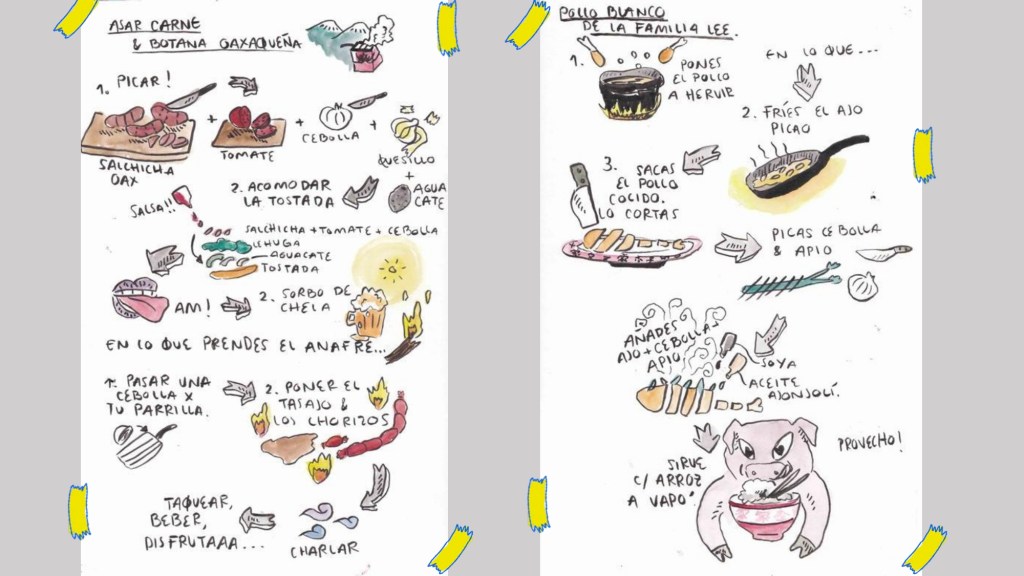 ASAR CARNE
& BOTANA OAXAQUEÑA
1. PICAR!
SALCHICHA
OAX
+
TOMATE
+
CEBOLLA
+
QUESILLO
+
AGUA
CATE
2. ACOMODAR
LA TOSTADA
SALSA!!
SALCHICHA + TOMATE + CEBOLLA
LECHUGA
AGUACATE
TOSTADA
AM!
2. SORBO DE
CHELA
EN LO QUE PRENDES EL ANAFRE...
1. PASAR UNA
CEBOLLA X
TU PARRILLA.
2. PONER EL
TASAJO &
LOS CHORIZOS
CHARLAR
TAQUEAR,
BEBER,
DISFRUTAAA...
POLLO BLANCO
DE LA FAMILIA LEE.
1.
PONES
EL POLLO
A HERVIR
EN LO QUE...
2. FRÍES EL AJO
PICAO
3. SACAS
EL POLLO
COCIDO.
LO CORTAS
PICAS CEBOLLA
& APIO
AÑADES
AJO + CEBOLLA +
APIO
SOYA
ACEITE
AJONJOLÍ.
SIRVE
C/ ARROZ
A VAPO'
PROVECHO!